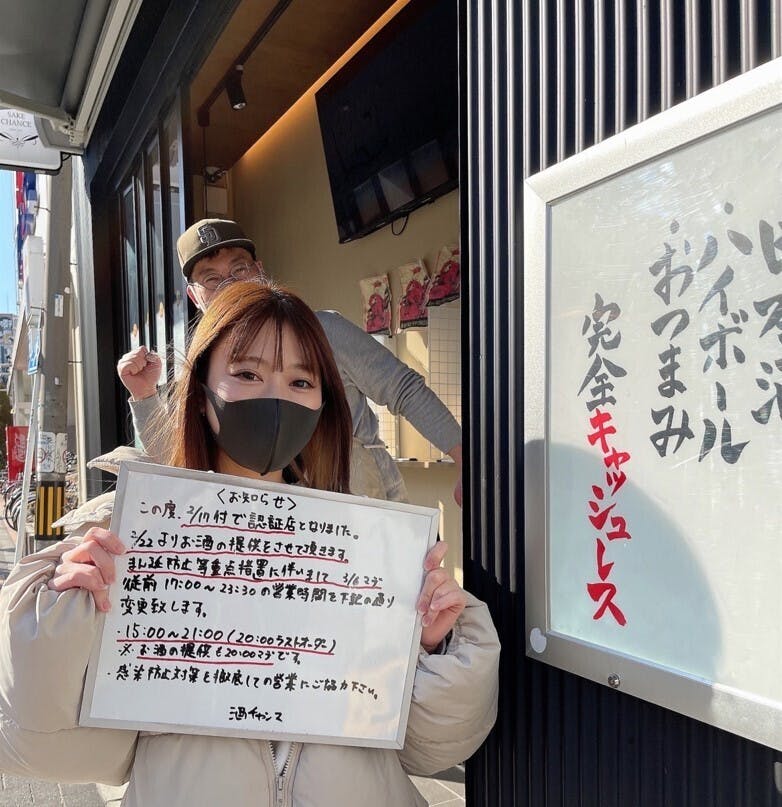 SAKE
CHANCE
〈お知らせ〉
この度、2/17付で認証店となりました。
2/22よりお酒の提供をさせて頂きます。
まん延防止等重点措置に伴いまして 3/6マデ
従前 17:00〜23:30の営業時間を下記の通り
変更致します。
・15:00〜21:00(20:00ラストオーダー)
※お酒の提供も20:00マデです。
・感染防止対策を徹底しての営業にご協力下さい。
酒チャンス
日本酒
ハイボール
・おつまみ
完全キャッシュレス